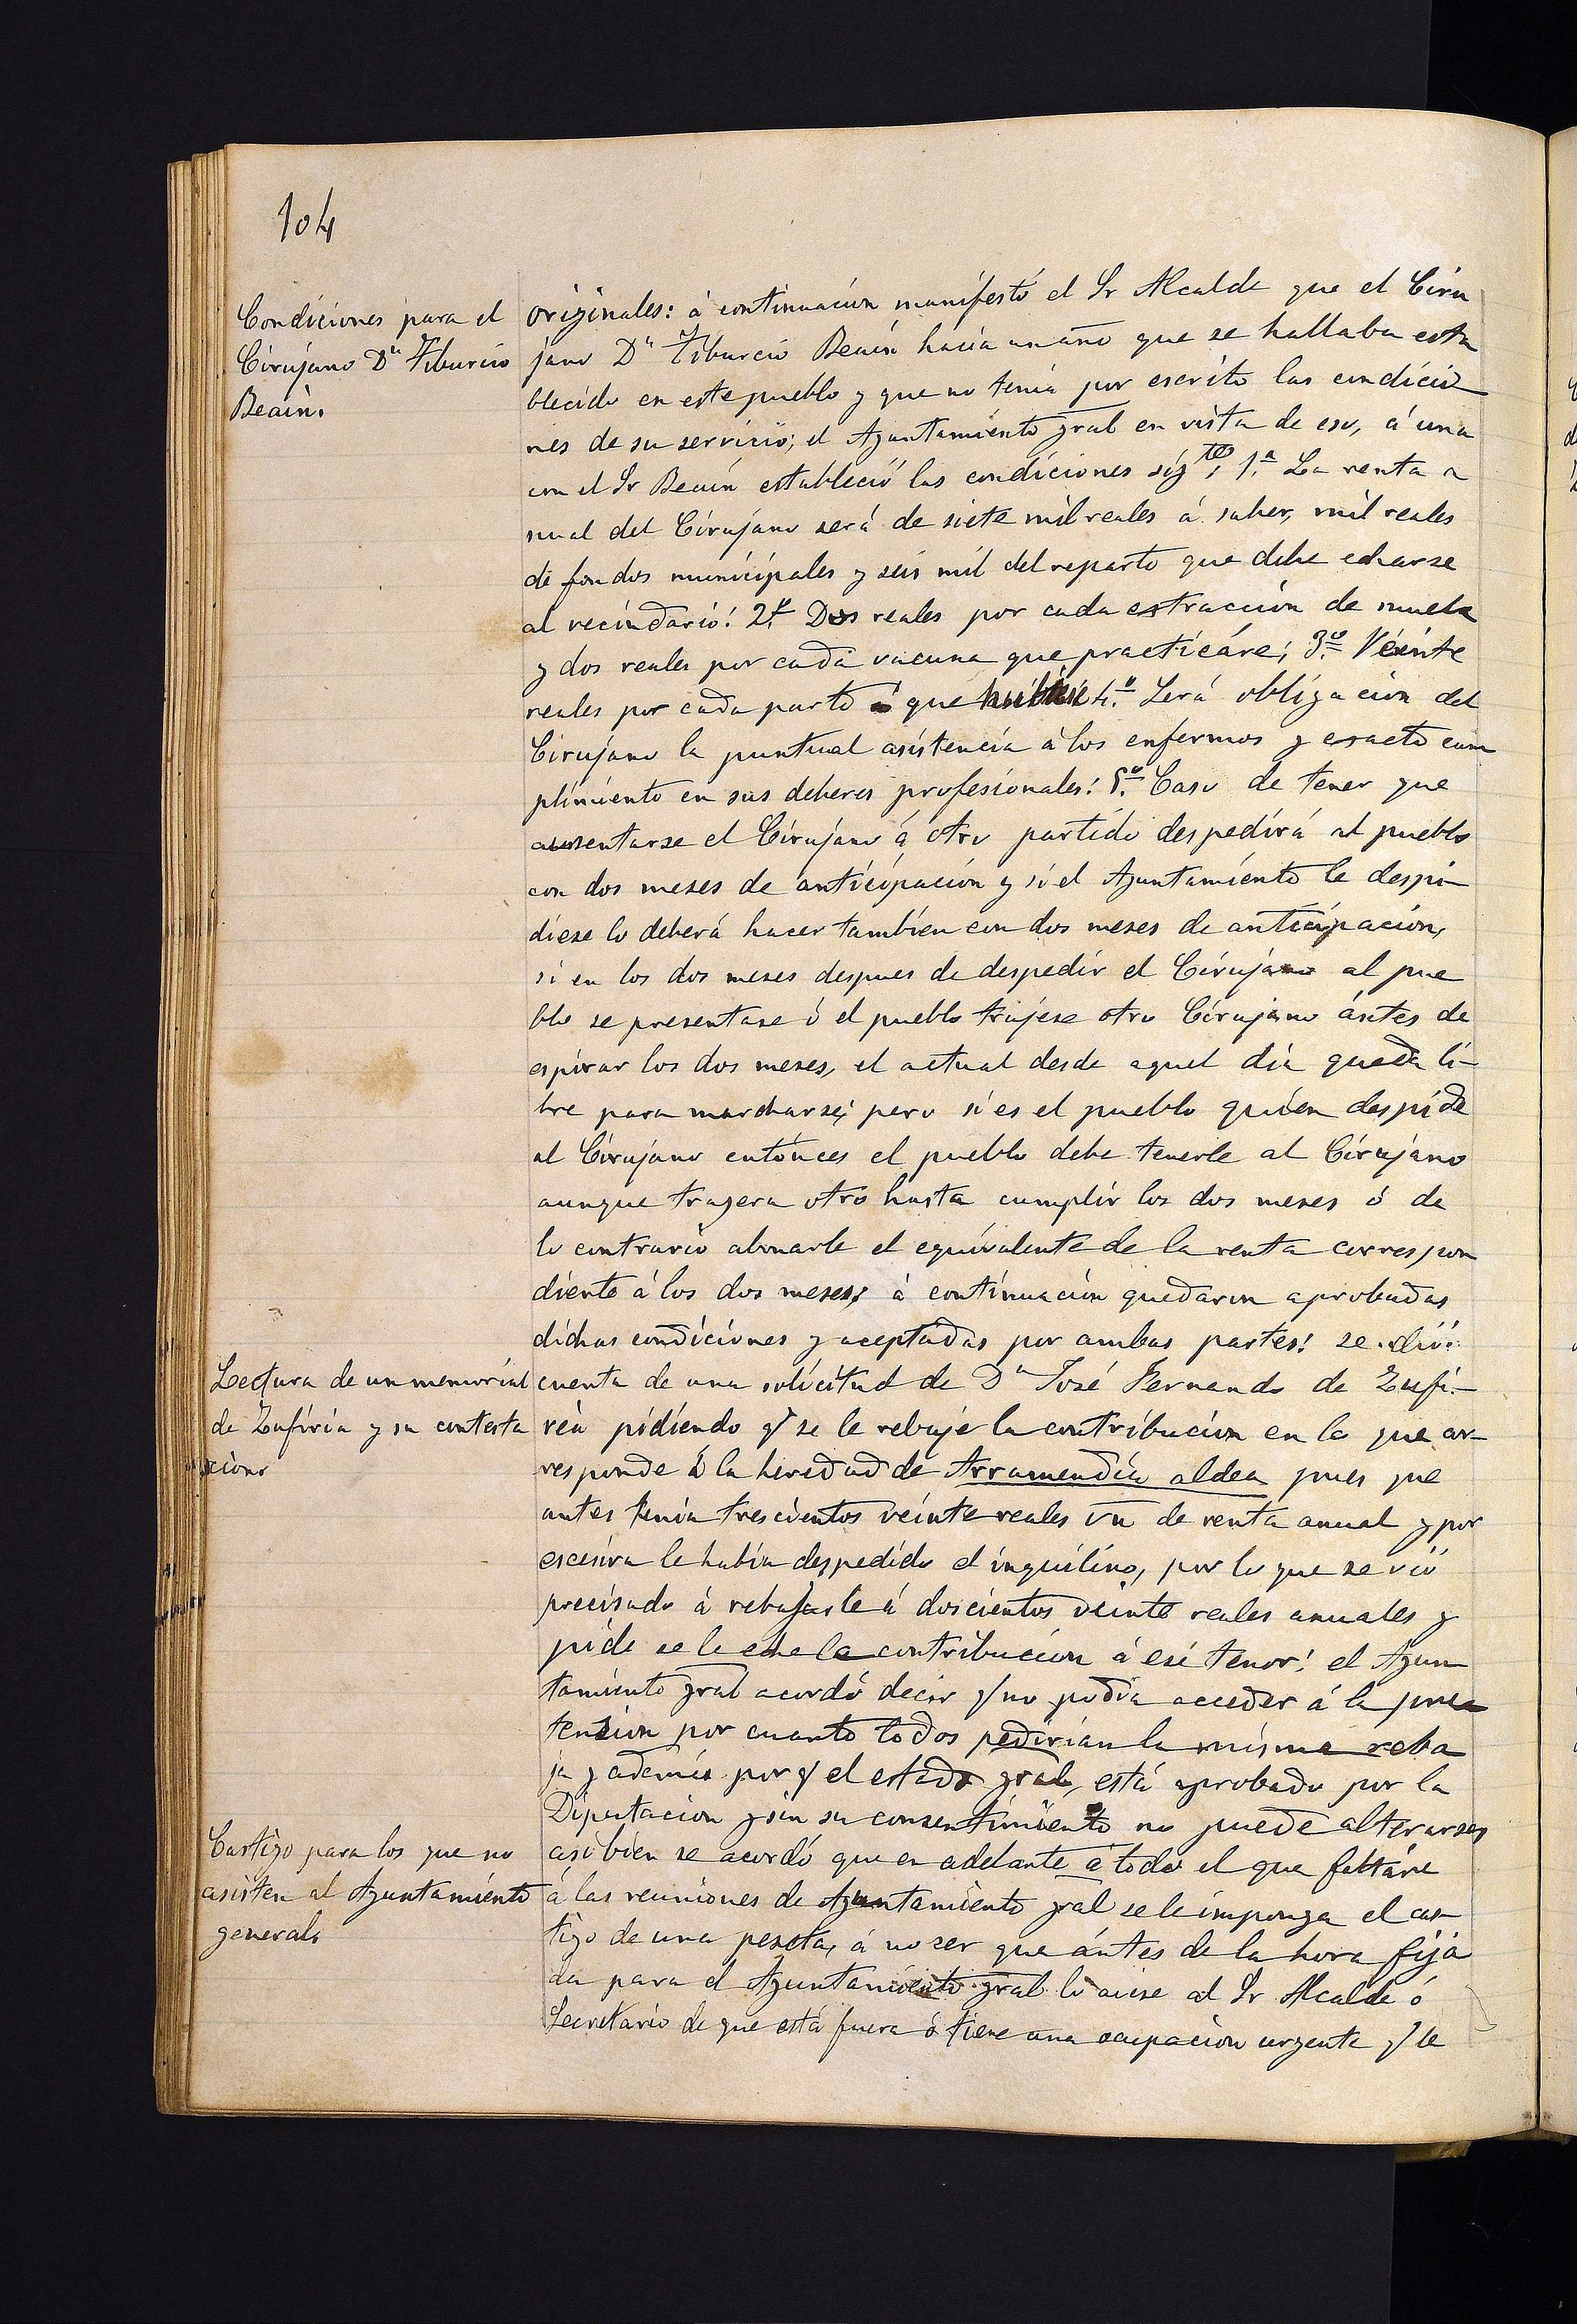 104
Condiciones para el
Cirujano Dn Tiburcio
Beain.
originales: á continuacion manifestó el Sr Alcalde que el Ciru
jano Dn Tiburcio Beain hacia un año que se hallaba esta
blecido en este pueblo y que no tenia por escrito las condicio
nes de su servicio; el Ayuntamiento gral en vista de eso, á una
con el Sr Beain estableció las condiciones sigtes; 1.ª La renta a
nual del Cirujano será de siete mil reales á saber, mil reales
de fondos municipales y seis mil del reparto que debe echarse
al vecindario: 2.º Dos reales por cada estracción de muela
y dos reales por cada vacuna que practicáre; 3.º Veinte
reales por cada parto á que hubiese 4.º Será obligacion del
Cirujano la puntual asistencia á los enfermos y esacto cum
plimiento en sus deberes profesionales: 5.º Caso de tener que
ausentarse el Cirujano á otro partido despedirá al pueblo
con dos meses de anticipación y si el Ayuntamiento le despi-
diese lo deberá hacer tambien con dos meses de anticipación,
si en los dos meses despues de despedir el Cirujano al pue
blo se presentase ó el pueblo trujese otro Cirujano ántes de
espirar los dos meses, el actual desde aquel dia queda li-
bre para marcharse; pero si es el pueblo quien despide
al Cirujano entónces el pueblo debe tenerle al Cirujano
aunque tragera otro hasta cumplir los dos meses ó de
lo contrario abonarle el equivalente de la renta correspon
diente á los dos meses; á continuacion quedaron aprobadas
dichas condiciones y aceptadas por ambas partes: se dió
Lectura de un memorial
de Zufiria y su contesta
cion.
cuenta de una solicitud de Dn José Fernando de Zufi-
ria pidiendo q/ se le rebaje la contribucion en lo que cor-
responde á la heredad de Arramendia aldea pues que
antes tenia trescientos veinte reales vn de renta anual y por
escesiva le habia despedido el inquilino, por lo que se vió
precisado á rebajarle á doscientos veinte reales anuales y
pide se le eche la contribucion á ese tenor: el Ayun
tamiento gral acordó decir q/ no podia acceder á la pre
tension por cuanto todos pedirian la misma reba
ja y además por q/ el estado gral, está aprobado por la
Diputacion y sin su consentimiento no puede alterarse;
Castigo para los que no
asisten al Ayuntamiento
general.
asi bien se acordó que en adelante á todo el que faltáre
á las reuniones de Ayuntamiento gral se le imponga el cas-
tigo de una peseta, á no ser que ántes de la hora fija
da para el Ayuntamiento gral lo avise al Sr Alcalde ó
Secretario de que está fuera ó tiene una ocupacion urgente q/ le